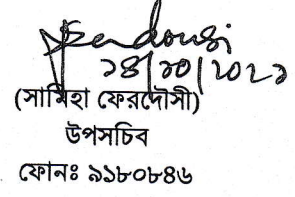 Ferdousi
১৪/১০/২০২১
(সামিহা ফেরদৌসী)
উপসচিব
ফোনঃ ৯১৮০৮৪৬